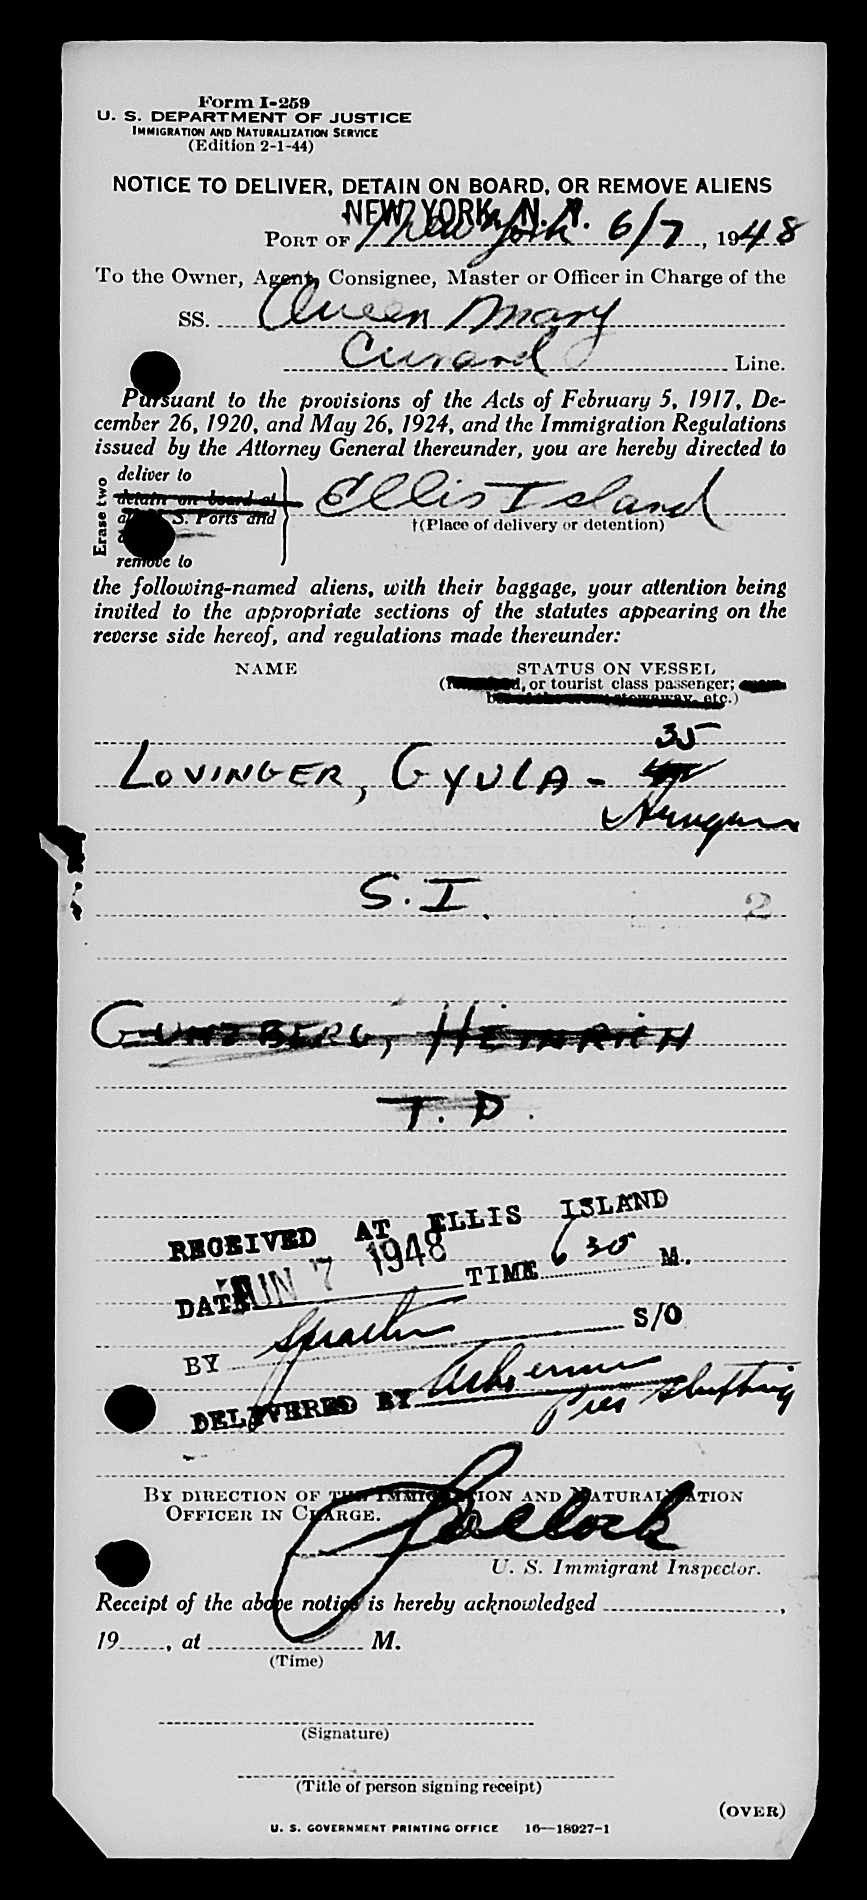 Form I-259
U. S. DEPARTMENT OF JUSTICE
IMMIGRATION AND NATURALIZATION SERVICE
(Edition 2-1-44)
NOTICE TO DELIVER, DETAIN ON BOARD, OR REMOVE ALIENS
NEW YORK, N. Y.
PORT OF New York 6/7, 1948
To the Owner, Agent, Consignee, Master or Officer in Charge of the
SS. Queen Mary
Cunard Line.
Pursuant to the provisions of the Acts of February 5, 1917, De-
cember 26, 1920, and May 26, 1924, and the Immigration Regulations
issued by the Attorney General thereunder, you are hereby directed to
Erase two
deliver to
detain on board at
S. Ports and
remove to
Ellis Island
†(Place of delivery or detention)
the following-named aliens, with their baggage, your attention being
invited to the appropriate sections of the statutes appearing on the
reverse side hereof, and regulations made thereunder:
NAME STATUS ON VESSEL
, or tourist class passenger;
stowaway, etc.)
35
LOVINGER, GYULA -
Hungarian
S. I.
2
GUNZBERG, HEINRICH
T. D.
RECEIVED AT ELLIS ISLAND
DATE JUN 7 1948 TIME 6 30 M.
BY S/O
DELIVERED BY
Pier
BY DIRECTION OF THE IMMIGRATION AND NATURALIZATION
OFFICER IN CHARGE.
U. S. Immigrant Inspector.
Receipt of the above notice is hereby acknowledged ,
19 , at M.
(Time)
(Signature)
(Title of person signing receipt)
(OVER)
U. S. GOVERNMENT PRINTING OFFICE 16—18927-1